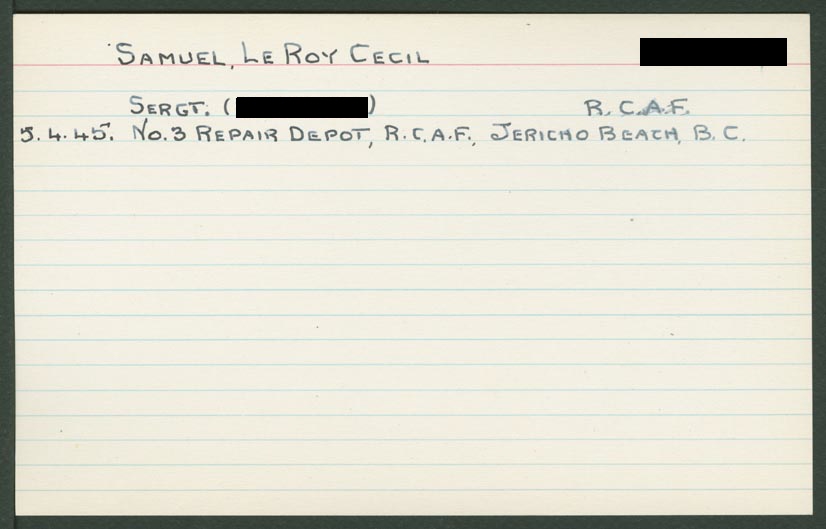 SAMUEL, LE ROY CECIL
SERGT. ( ) R.C.A.F.
5.4.45. NO.3 REPAIR DEPOT, R.C.A.F., JERICHO BEACH, B.C.